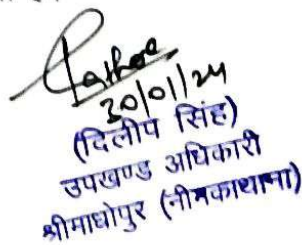 30/01/24
(दिलीप सिंह)
उपखण्ड अधिकारी
श्रीमाधोपुर (नीमकाथाना)